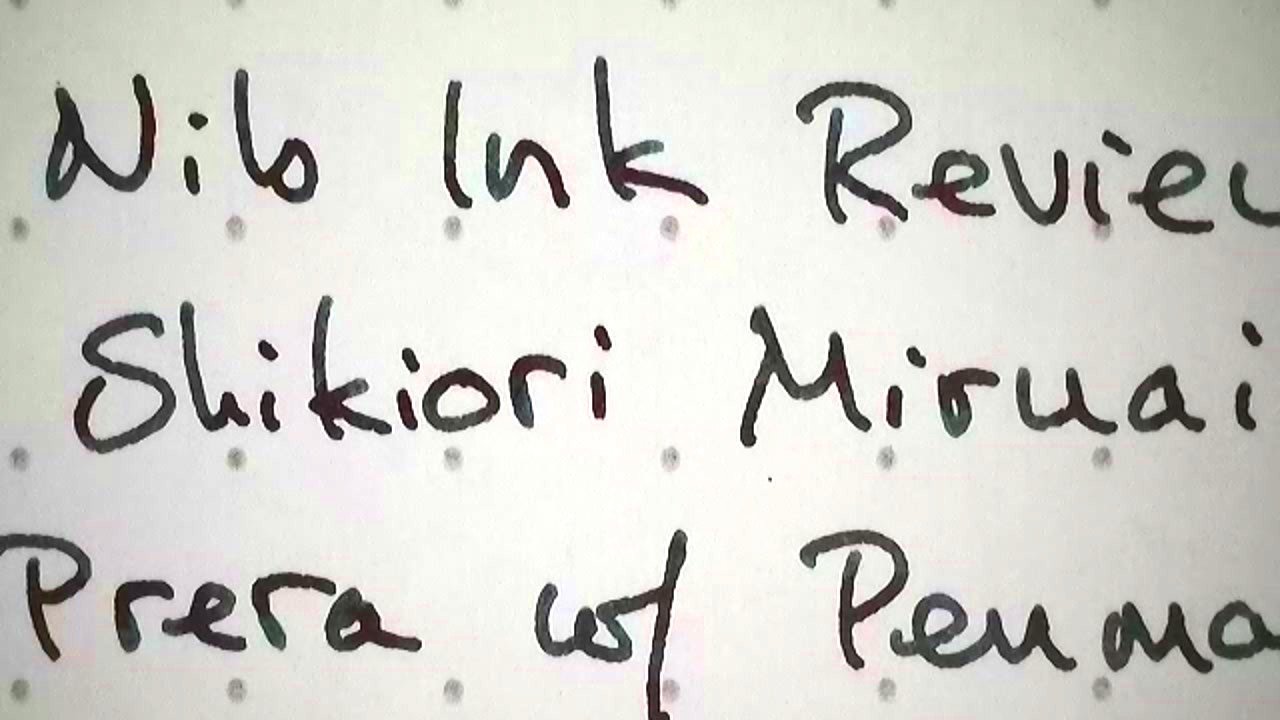 Nib Ink Review
Shikiori Miruai
Prera w/ Penma